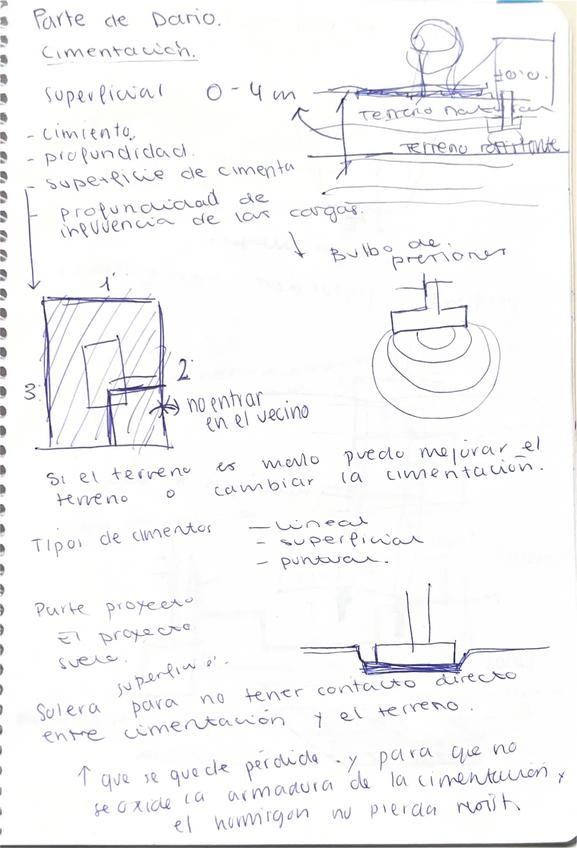 Parte de Dario.
Cimentación.
Superficial 0-4m
Terreno natural
Terreno resistente
- cimiento.
- profundidad.
- superficie de cimenta
- profundidad de
influencia de las cargas.
Bulbo de
presiones
1
2.
3.
no entrar
en el vecino
Si el terreno es malo puedo mejorar el
terreno o cambiar la cimentación.
Tipos de cimentos
- Lineal
- superficial
- puntual.
Parte proyecto
El proyecto
suele.
Solera para no tener contacto directo
entre cimentación y el terreno.
↑ que se quede pérdida. y para que no
se oxide la armadura de la cimentación y
el hormigon no pierda